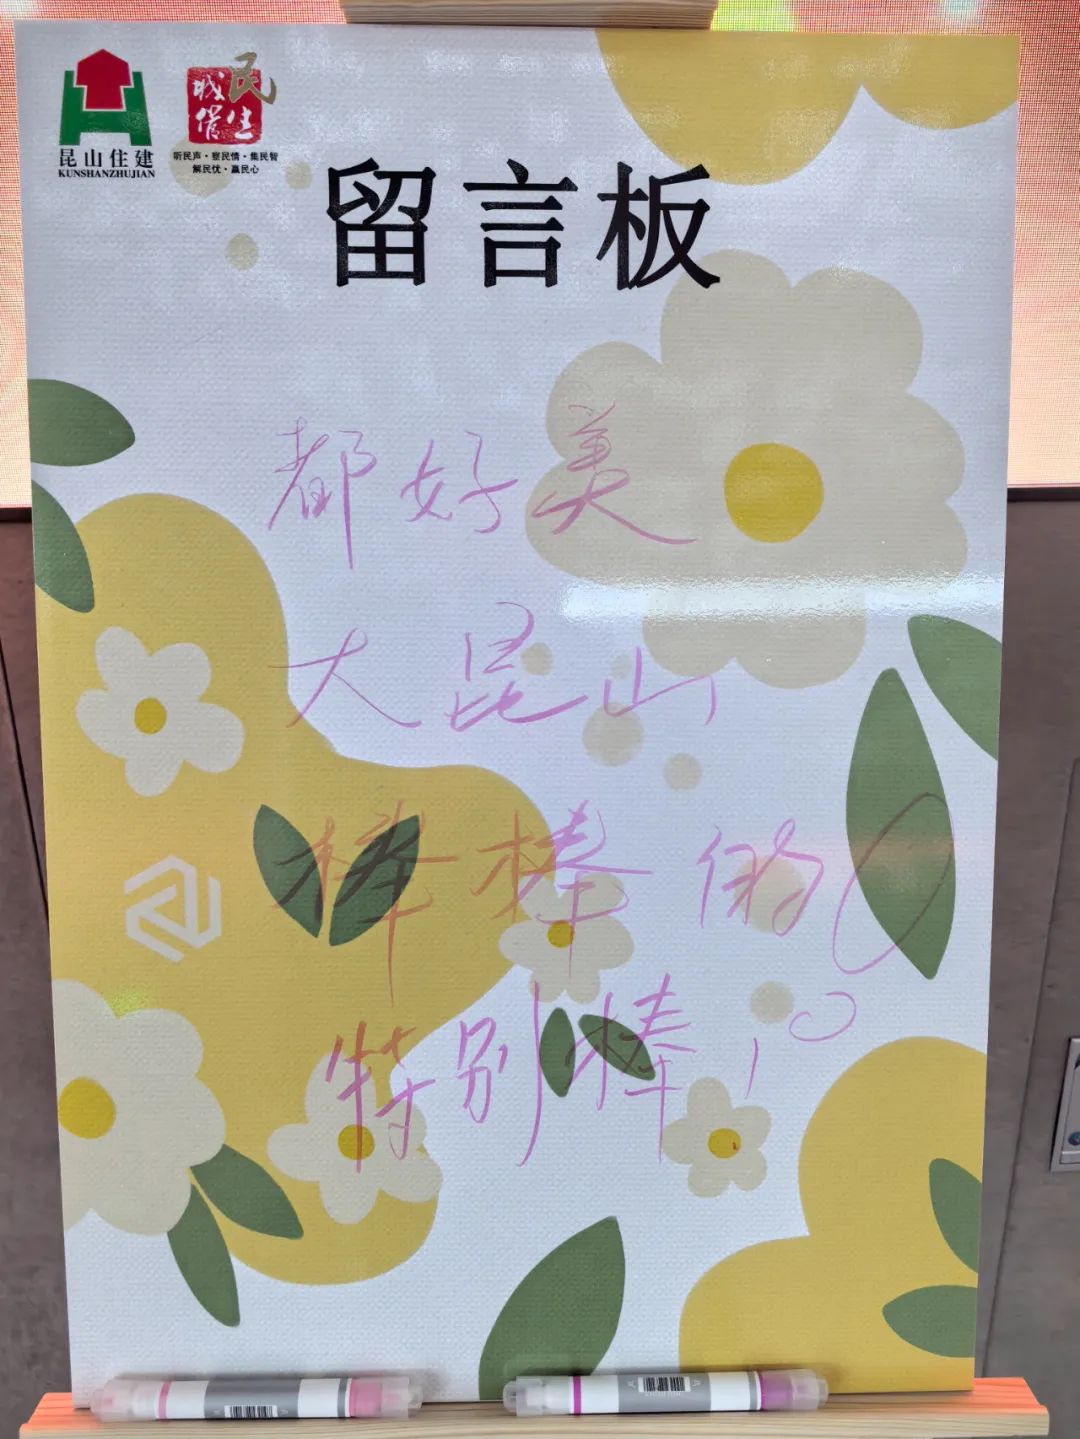 昆山住建
KUNSHANZHUJIAN
民生
听民声·察民情·集民智
解民忧·赢民心
留言板
都好美
大昆山,
棒棒的
特别棒,